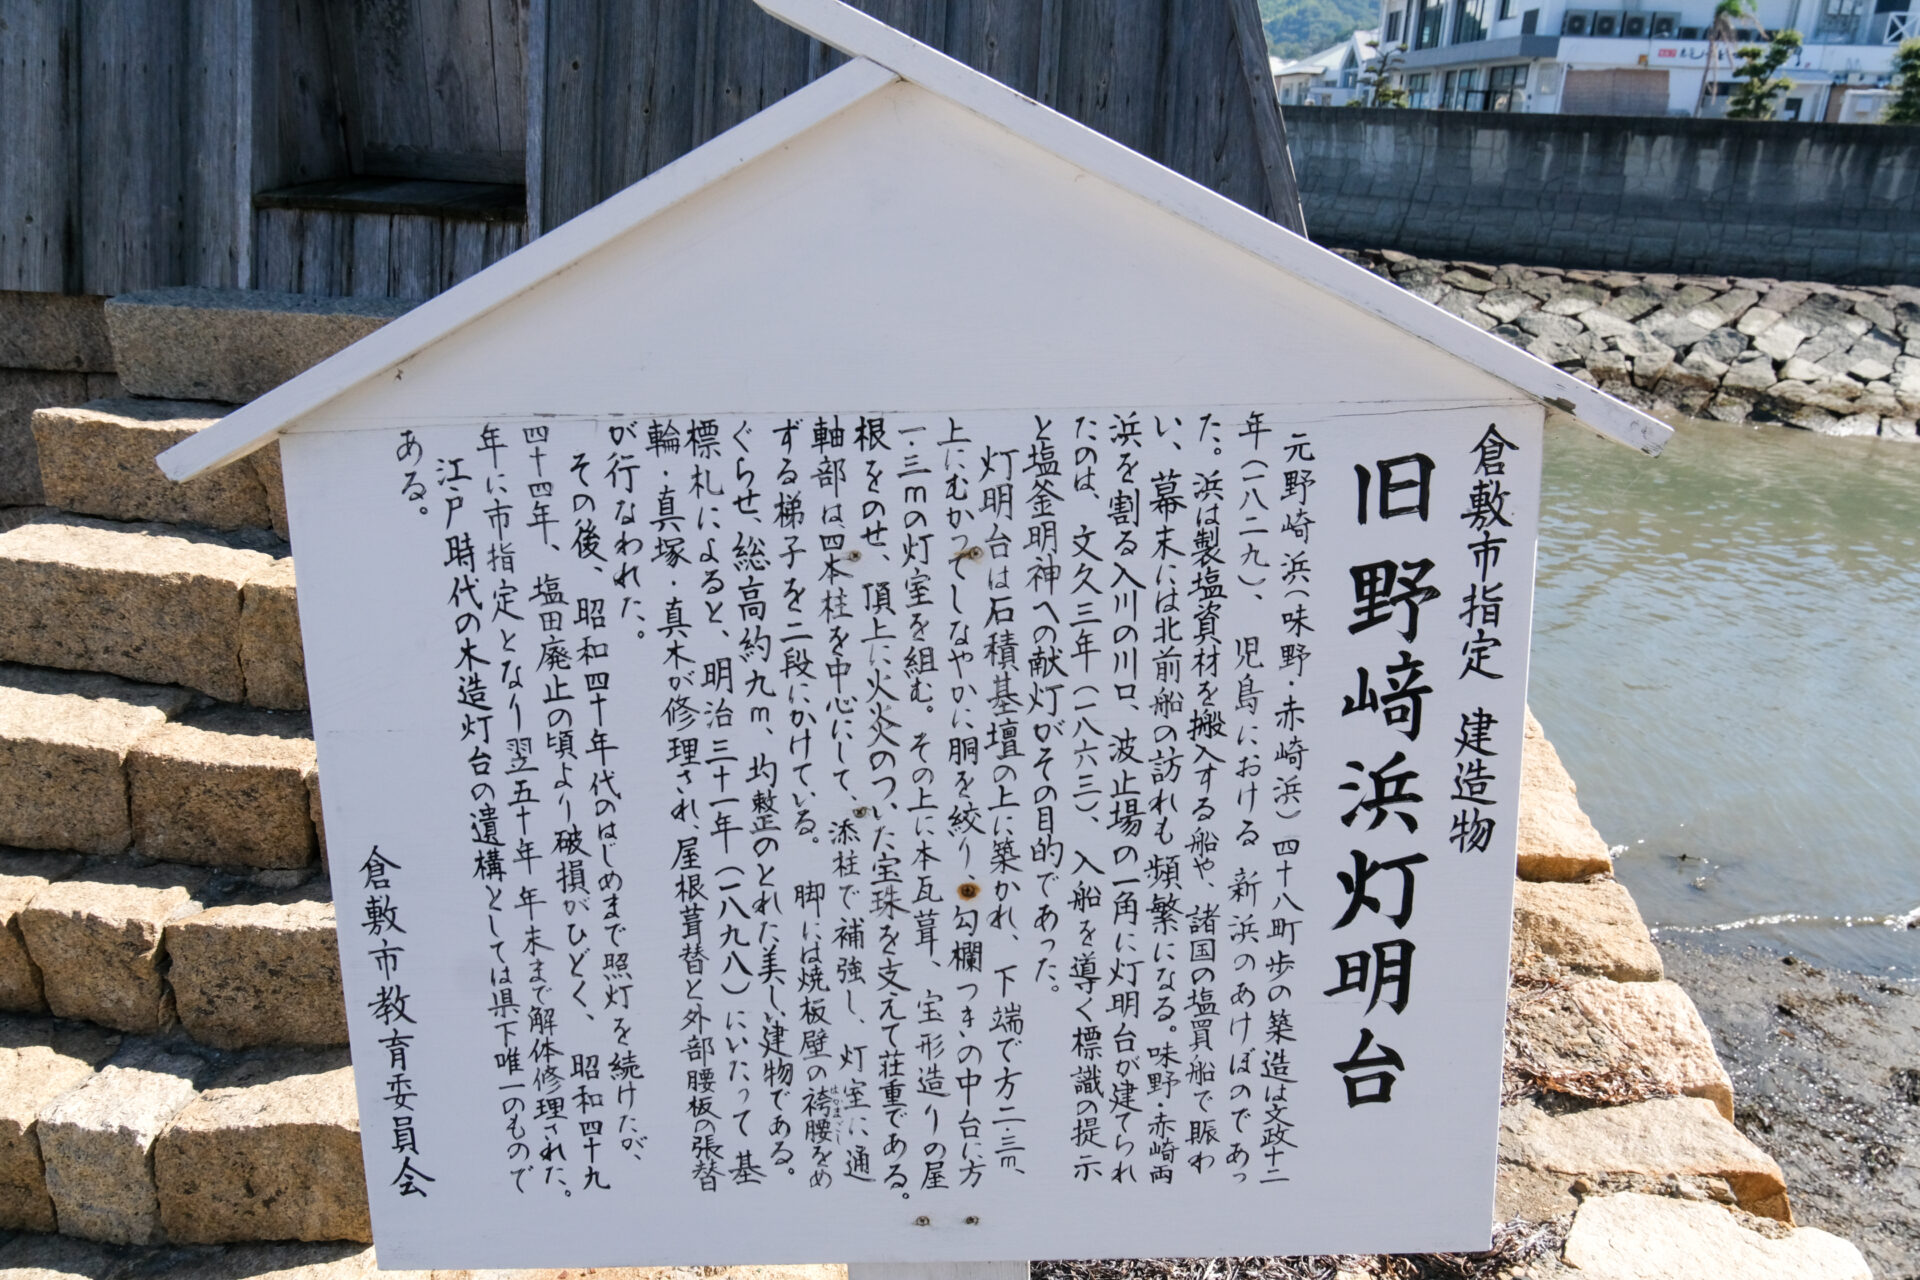 倉敷市指定 建造物
旧野﨑浜灯明台
元野崎浜(味野・赤崎浜)四十八町歩の築造は文政十二
年(一八二九)、児島における 新浜のあけぼのであっ
た。浜は製塩資材を搬入する船や、諸国の塩買船で賑わ
い、幕末には北前船の訪れも頻繁になる。味野・赤崎両
浜を割る入川の川口、波止場の一角に灯明台が建てられ
たのは、文久三年(一八六三)、入船を導く標識の提示
と塩釜明神への献灯がその目的であった。
灯明台は石積基壇の上に築かれ、下端で方二・三m、
上にむかってしなやかに胴を絞り、勾欄つきの中台に方
一・三mの灯室を組む。その上に本瓦葺、宝形造りの屋
根をのせ、頂上に火炎のついた宝珠を支えて荘重である。
軸部は四本柱を中心にして、添柱で補強し、灯室に通
ずる梯子を二段にかけている。 脚には焼板壁の袴腰をめ
はかまごし
ぐらせ、総高約九m、均整のとれた美しい建物である。
標札によると、明治三十一年(一八九八)にいたって基
輪・真塚・真木が修理され、屋根葺替と外部腰板の張替
が行なわれた。
その後、昭和四十年代のはじめまで照灯を続けたが、
四十四年、塩田廃止の頃より破損がひどく、昭和四十九
年に市指定となり翌五十年 年末まで解体修理された。
江戸時代の木造灯台の遺構としては県下唯一のもので
ある。
倉敷市教育委員会